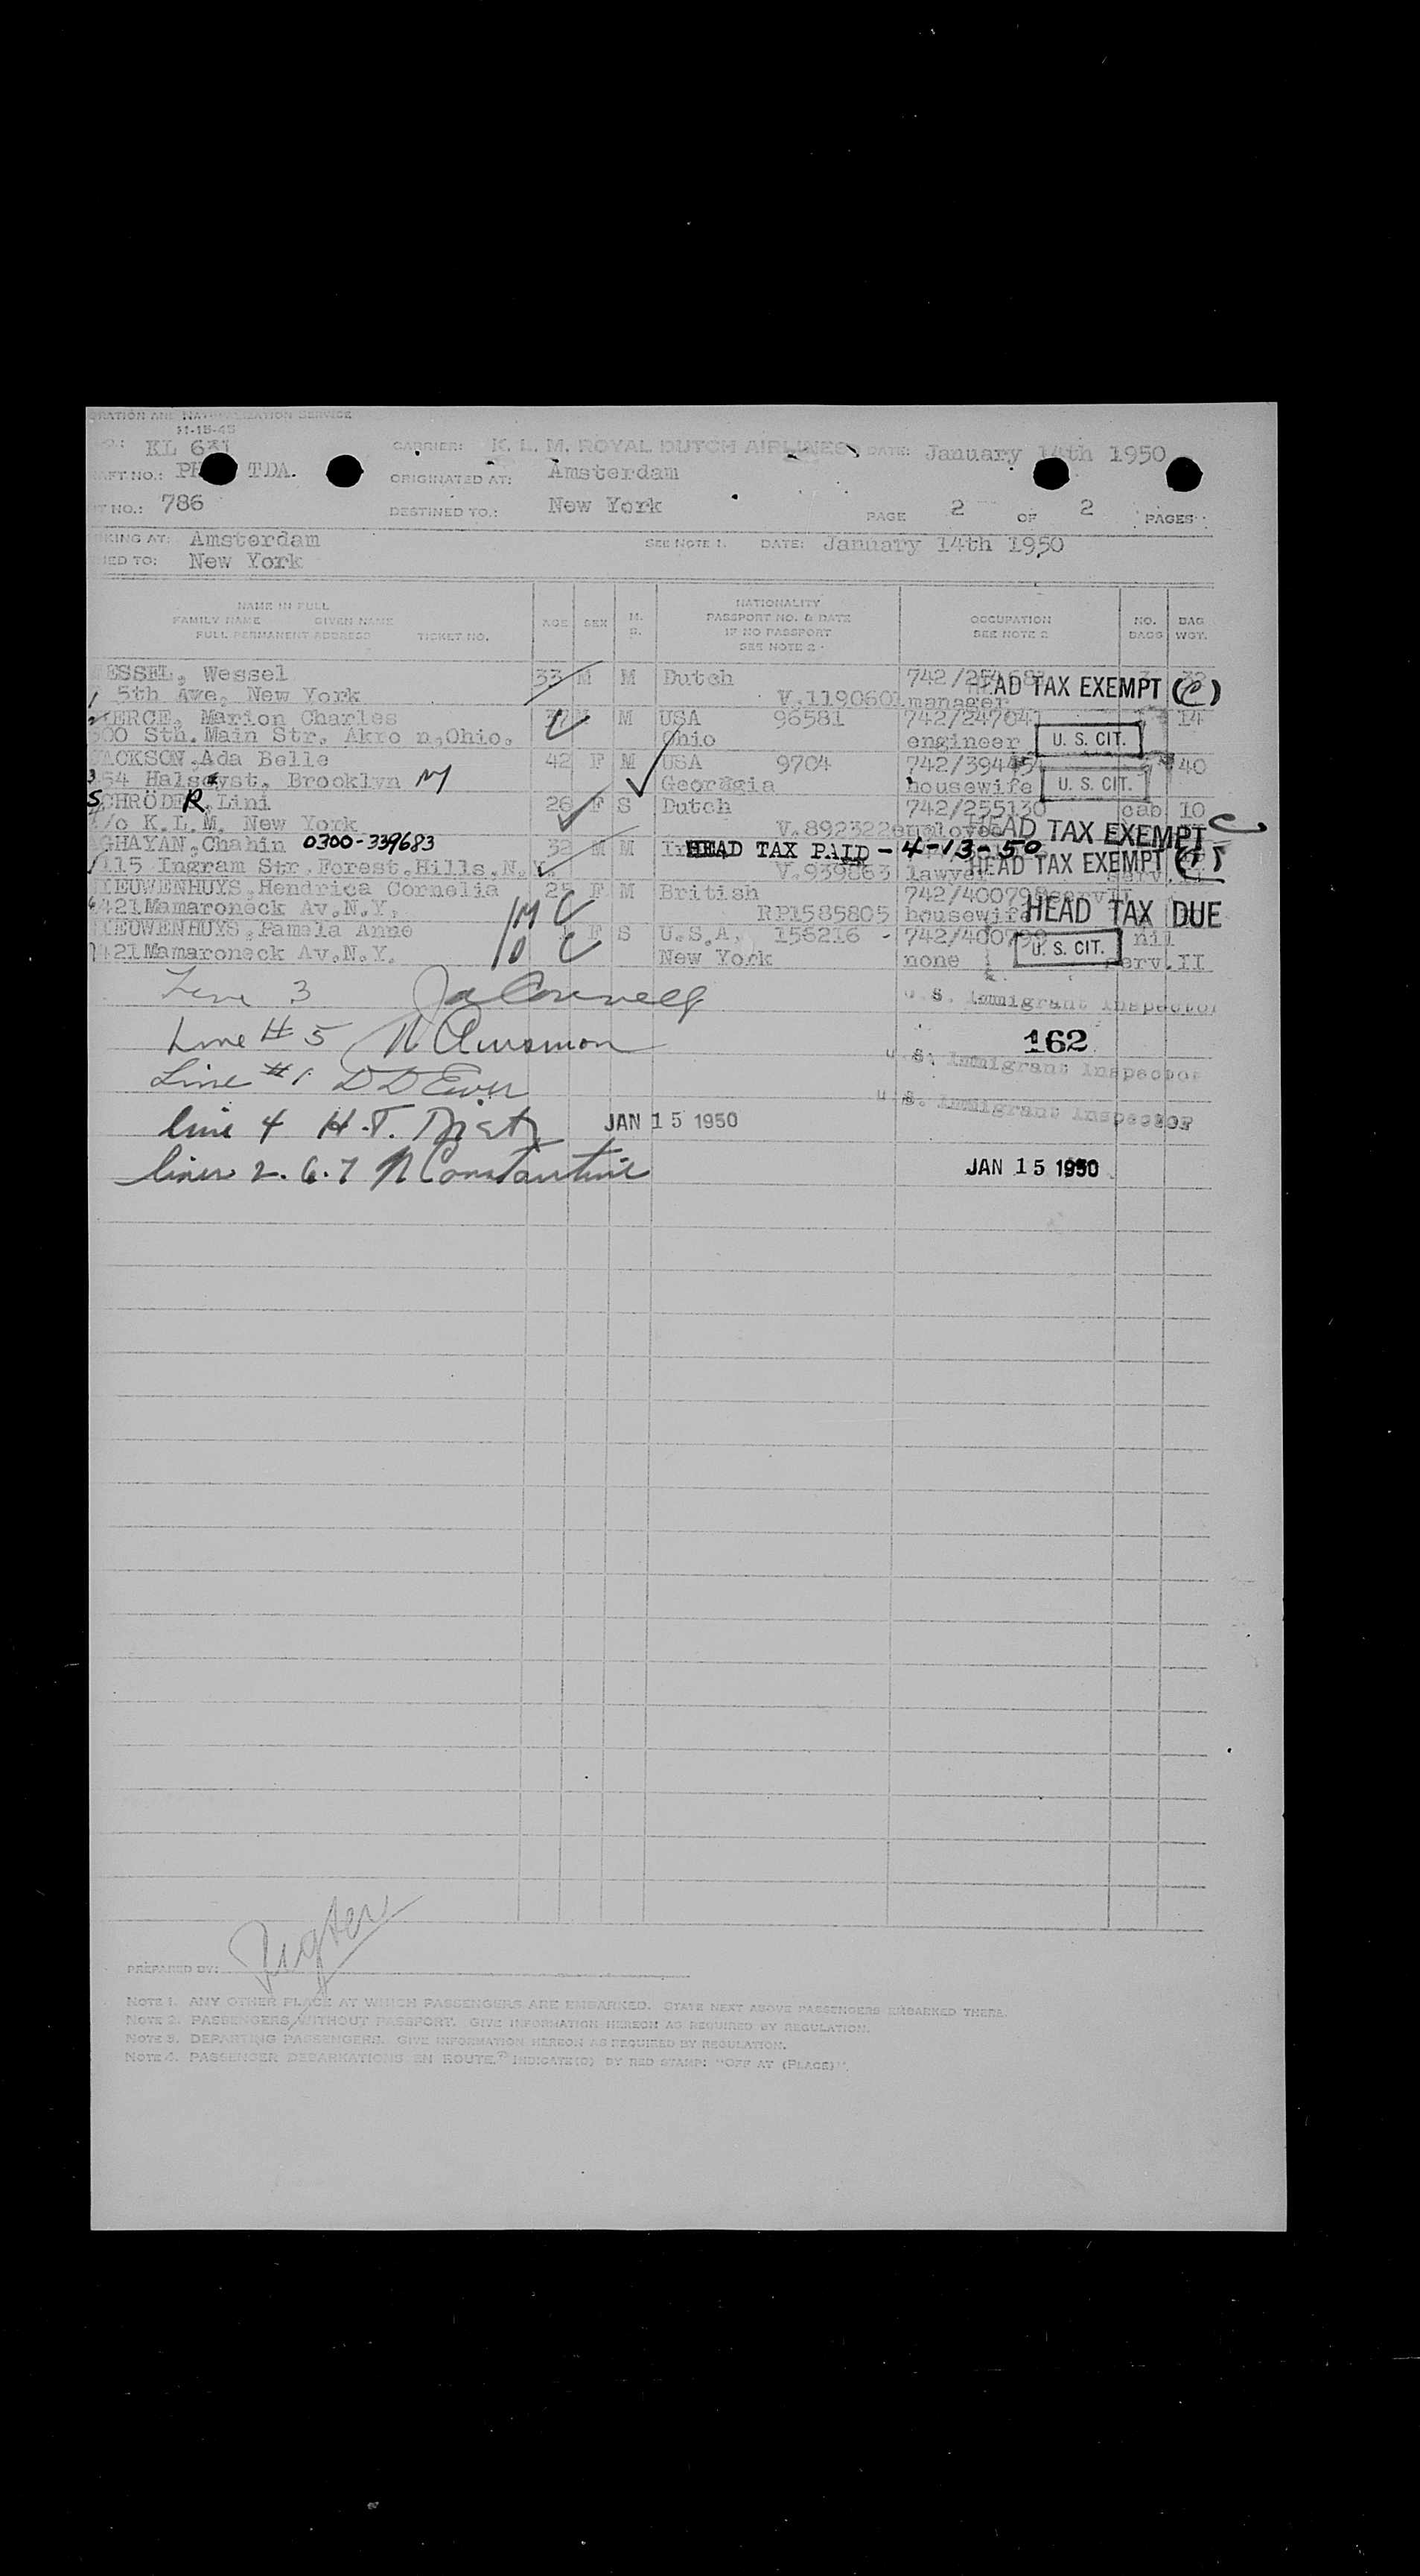 RATION AND NATURALIZATION SERVICE
11-15-45
KL 631 CARRIER: K. L. M. ROYAL DUTCH AIRLINES DATE: January 14th 1950
AFT NO.: PH TDA. ORIGINATED AT: Amsterdam
T NO.: 786 DESTINED TO.: New York PAGE 2 OF 2 PAGES
KING AT: Amsterdam SEE NOTE 1. DATE: January 14th 1950
NED TO: New York
NAME IN FULL
FAMILY NAME GIVEN NAME
FULL PERMANENT ADDRESS TICKET NO. AGE SEX M. S. NATIONALITY PASSPORT NO. & DATE IF NO PASSPORT SEE NOTE 2 OCCUPATION SEE NOTE 2 NO. BAGS BAG WGT.
ESSEL, Wessel 33 M M Dutch HEAD TAX EXEMPT (C)
1 5th Ave, New York V.1190601 manager
IERCE, Marion Charles M USA 96581 742/247641 14
500 Sth. Main Str. Akro n,Ohio. Ohio engineer U. S. CIT.
JACKSON,Ada Belle 42 F M USA 9704 742/394454 40
3 54 Halseyst, Brooklyn NY Georgia housewife U. S. CIT.
SCHRÖDER,Lini 26 F S Dutch 742/255130 cab 10
/o K.L.M. New York V.892322 employee HEAD TAX EXEMPT C
GHAYAN,Chahin 0300-339683 32 M M HEAD TAX PAID - 4-13-50
115 Ingram Str.Forest.Hills.N.Y. V.939863 lawyer HEAD TAX EXEMPT
IEUWENHUYS.Hendrica Cornelia 25 F M British 742/400798
6 421 Mamaroneck Av.N.Y. 1M C RP1585805 housewife HEAD TAX DUE
IEUWENHUYS,Pamela Anne F S U.S.A. 156216 - 742/400799 nil
7 421 Mamaroneck Av.N.Y. 10 C New York none U. S. CIT. serv.II
Line 3 U. S. Immigrant Inspector
Line # 5 162
U. S. Immigrant Inspector
Line # 1
U. S. Immigrant Inspector
line 4 H.T. JAN 15 1950
lines 2. 6. 7 N Constantine JAN 15 1950
PREPARED BY:
NOTE 1. ANY OTHER PLACE AT WHICH PASSENGERS ARE EMBARKED. STATE NEXT ABOVE PASSENGERS EMBARKED THERE.
NOTE 2. PASSENGERS WITHOUT PASSPORT. GIVE INFORMATION HEREON AS REQUIRED BY REGULATION.
NOTE 3. DEPARTING PASSENGERS. GIVE INFORMATION HEREON AS REQUIRED BY REGULATION.
NOTE 4. PASSENGER DEBARKATIONS EN ROUTE. INDICATE(D) BY RED STAMP: "OFF AT (PLACE)".